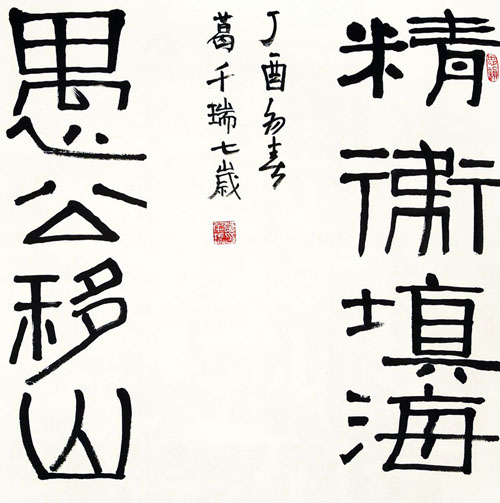 精衛填海
丁酉初春
葛千瑞七歲
愚公移山